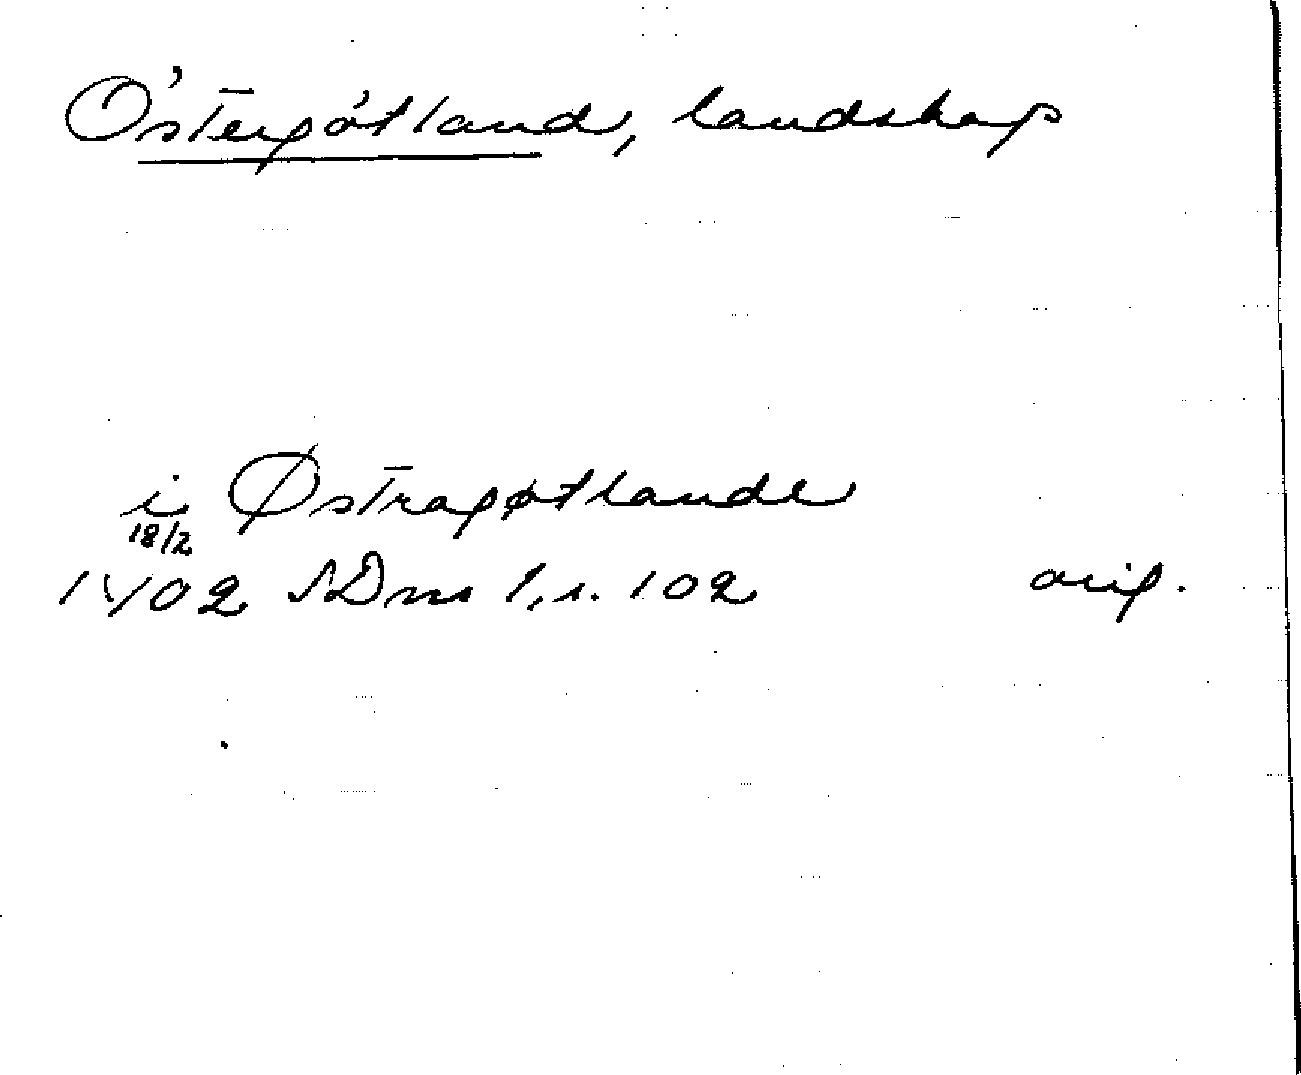 Östergötland, landskap
i Østragøtlande
18/2
1402 SDns 1, s. 102 orig.